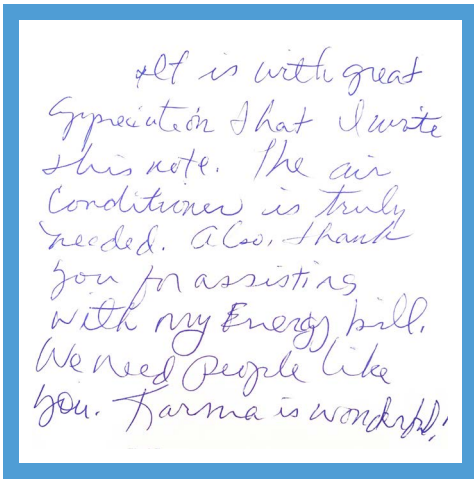 It is with great
appreciation that I write
this note. The air
Conditioner is truly
needed. Also, thank
you for assisting
with my Energy bill.
We need people like
you. Karma is wonderful!